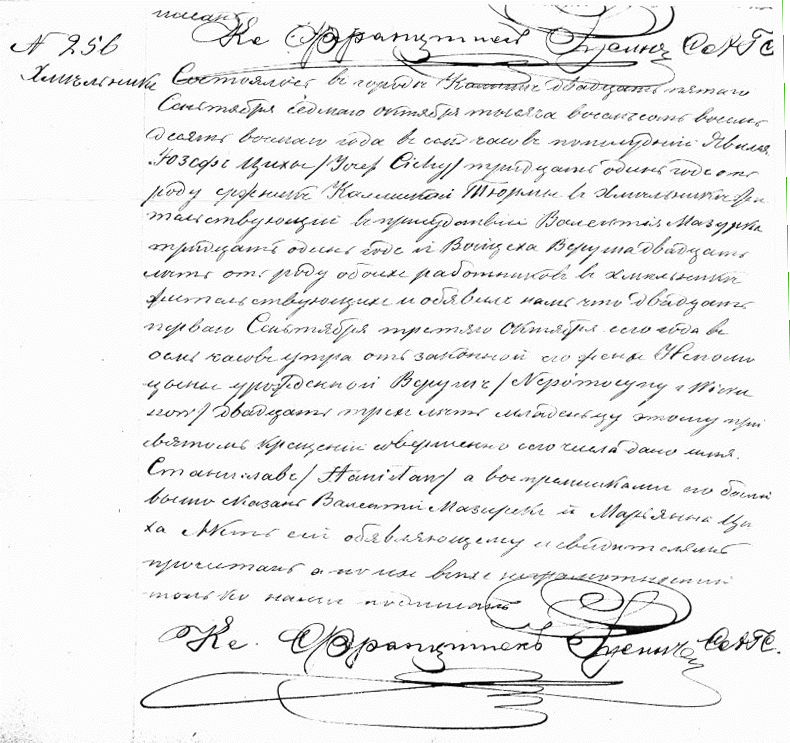 писанъ
Кс Францишекъ САГС
№ 256
Хмельникъ
Состоялось въ городѣ двадцать пятаго
Сентября седмаго Октября тысяча восемсотъ восемь
десятъ восмаго года въ семь часовъ пополудни Явился
Юзефъ Цихы /Josef Cichy/ тридцать одинъ годъ отъ
роду Калишской Тюрмы въ Хмельнике жи
тельствующій въ присудствіи Валентія Мазурка
тридцать одинъ годъ и Войцеха Веруша двадцать
лятъ отъ роду обоихъ работниковъ въ Хмельнике
жительствующихъ и объявилъ намъ что двадцать
перваго Сентября третяго Октября сего года въ
осмь часовъ утра отъ законной его жены Непомо
цыны урожденной /Nepomocyny z
/ двадцать трехъ лятъ младенцу этому при
святомъ крещеніи совершенно сего числа дано имя
Станиславъ /Stanisław/ а воспреемниками его были
Валенти Мазурекъ и Маріянна Ци
ха Актъ сей объявляющему и свидителямъ
прочитанъ а по ихъ неграмотности
только нами подписанъ
Кс. Францишекъ САГС.